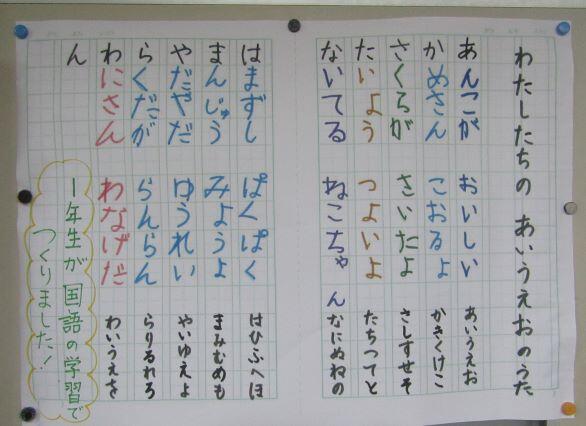 わたしたちの あいうえおのうた
あんこが おいしい あいうえお
かめさん こおるよ かきくけこ
さくらが さいたよ さしすせそ
たいよう つよいよ たちつてと
ないてる ねこちゃん なにぬねの
はまずし ぱくぱく はひふへほ
まんじゅう みようよ まみむめも
やだやだ ゆうれい やいゆえよ
らくだが らんらん らりるれろ
わにさん わなげだ わいうえを
ん
1年生が国語の学習で
つくりました！